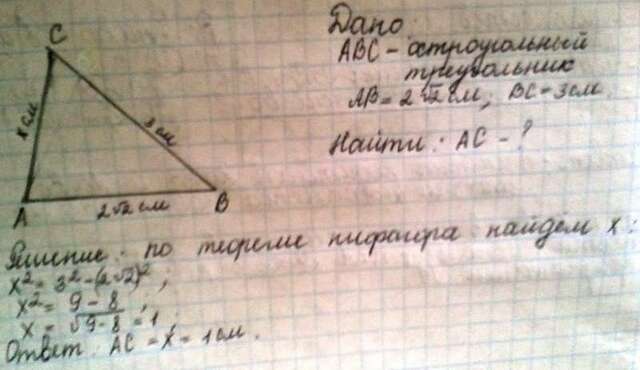 A
x см
C
2√2 см
3 см
B
Дано:
ABC - остроугольный
треугольник
AB = 2√2 см, BC = 3 см
Найти: AC - ?
Решение: по теореме пифагора найдём x:
x² = 3² - (2√2)²;
x² = 9 - 8
x = √9-8 = 1,
Ответ: AC = x = 1 см.